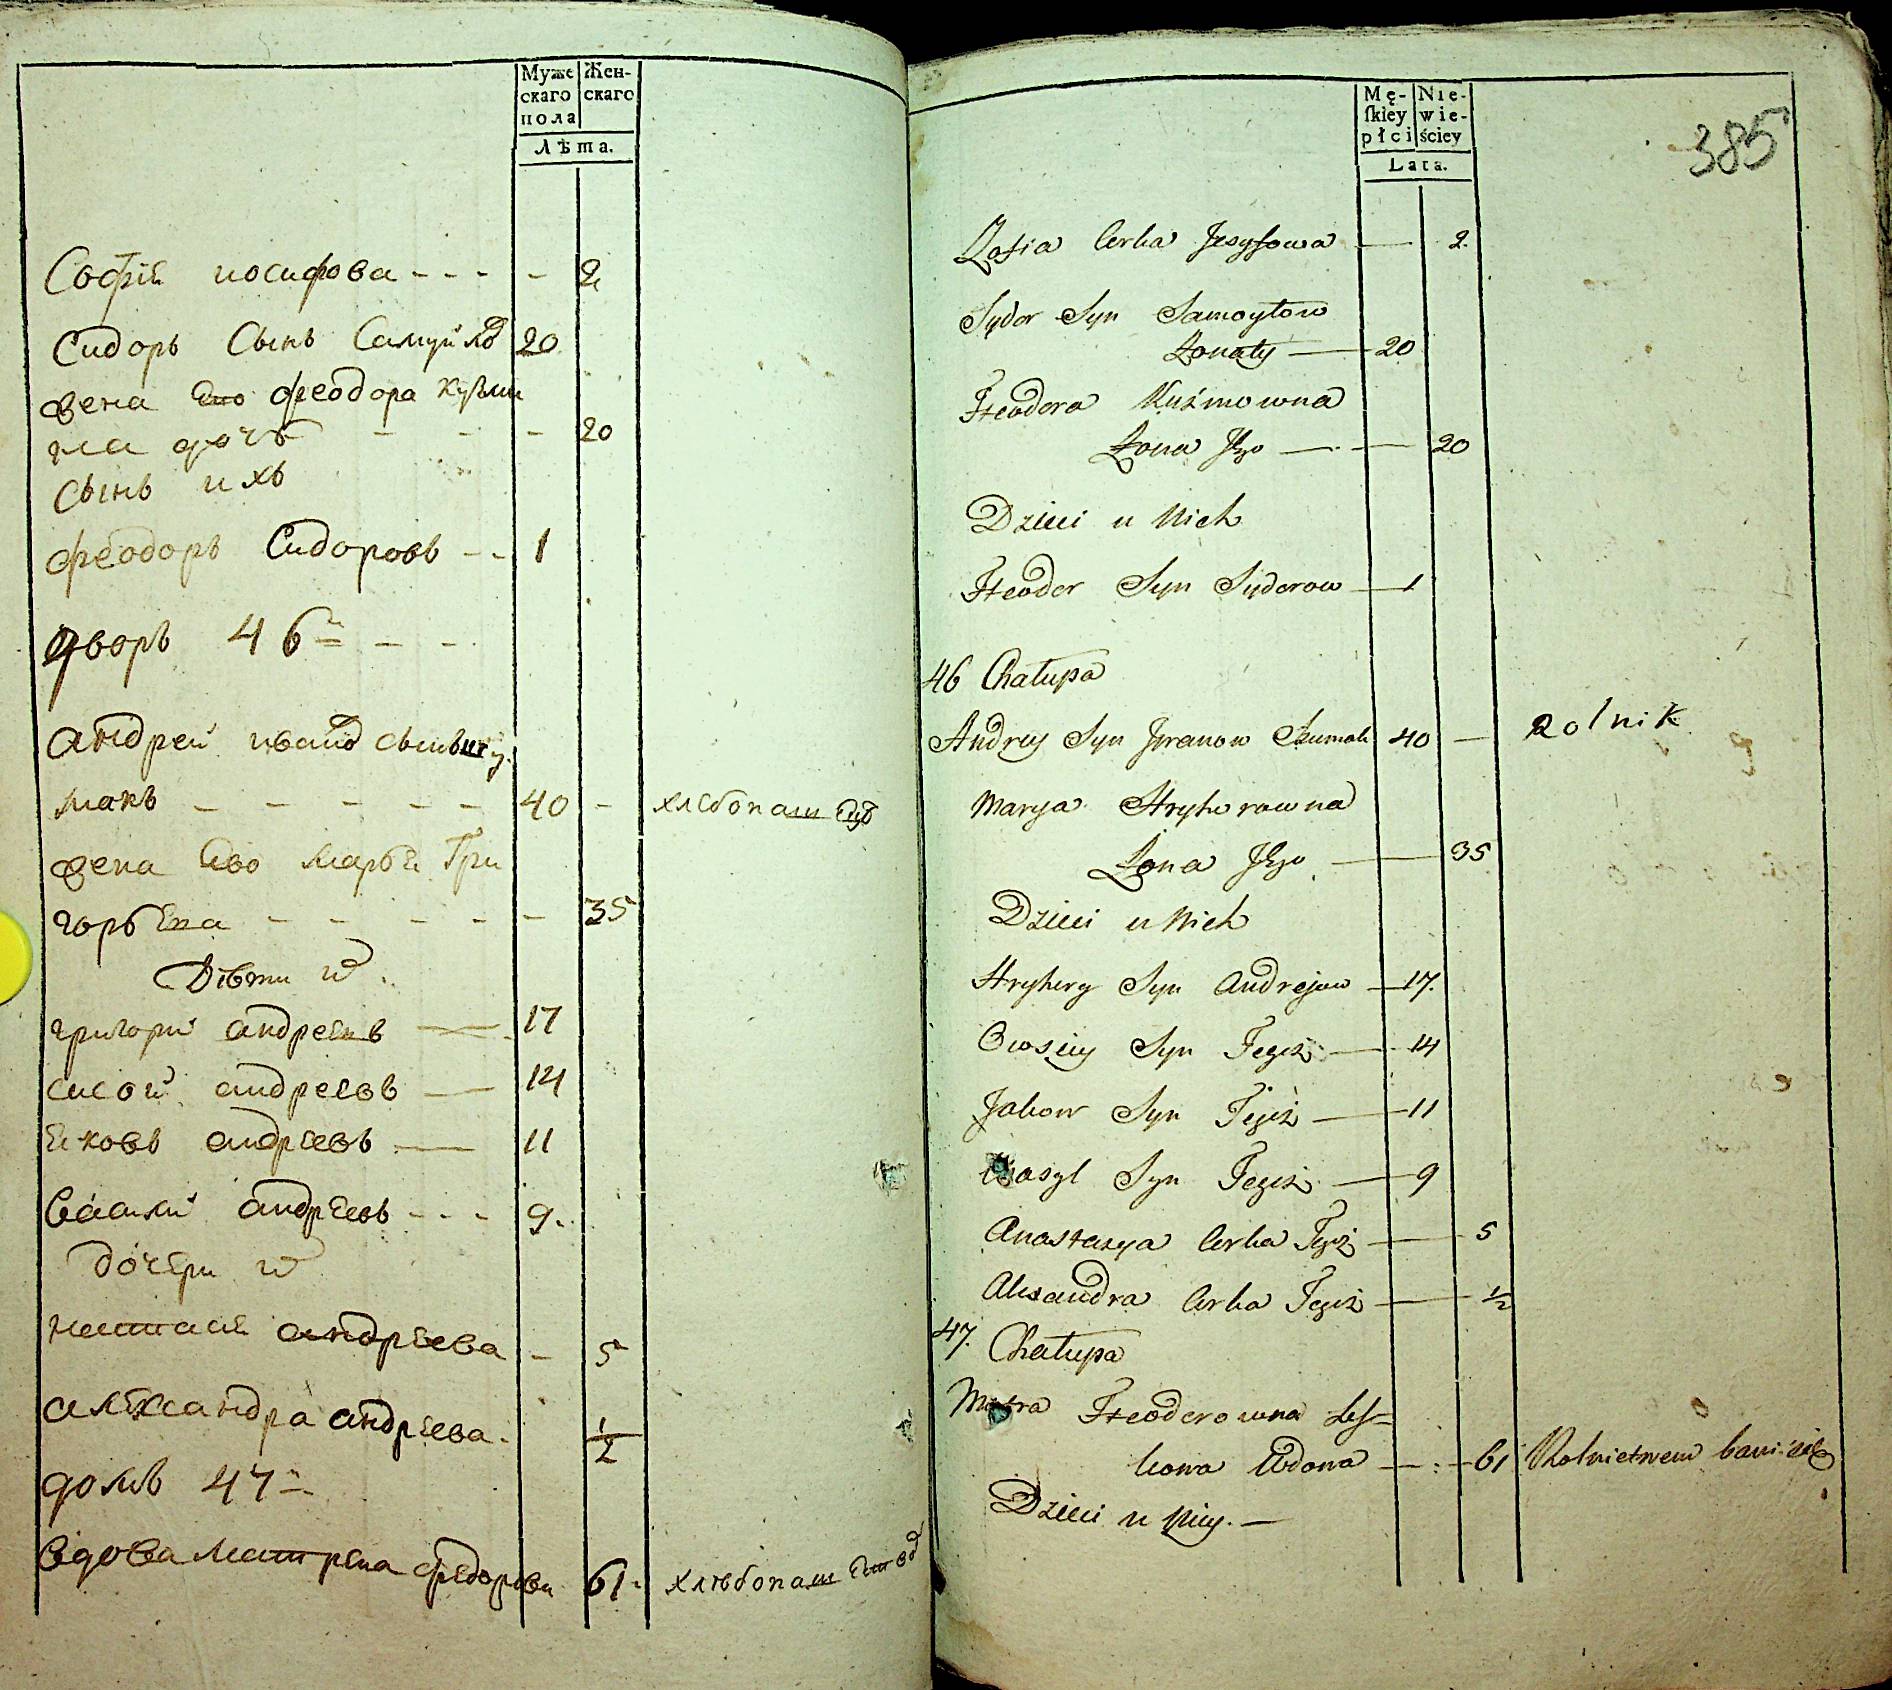 Муже
скаго
пола
Жен-
скаго
Лѣта.
Софіѧ иосифова - - - - 2
Сидоръ Сынъ Самуйлов 20
жена Его феодора кузми
на дочь - - - 20
Сынъ ихъ
феодоръ Сидоровъ - - 1
дворъ 46й - -
андрей иванов сынъ шу
макъ - - - - - 40 - хлебопашецъ
жена Ево Марьѧ Гри
горьена - - - - - 35
Дѣти ихъ
григорий андреевъ — 17
сисой андреевъ — 14
ѧковъ андреевъ — 11
Васили андреевъ - - - 9.
дочери их
настасѧ андреева - 5
александра андреева. 1/2
домъ 47й
Вдова матрена федорова 61. хлѣбопаш
Mę-
skiey
płci
Nie-
wie-
ściey
Lata.
385
Zofia Corka Jozyfowa — 2.
Sydor Syn Samoyłow
Żonaty — 20
Fteodora Kuźmowna
Żona Jego — 20
Dzieci u Nich
Fteodor Syn Syderow — 1
46 Chałupa
Andrzy Syn Jwanow Szumak 40 — Rolnik
Marya Hryhorowna
Żona Jego — 35
Dzieci u Nich
Hryhory Syn Andrejow — 17.
Owsiey Syn Tegoż — 14
Jakow Syn Tegoż — 11
Wasyl Syn Tegoż — 9
Anastazya Corka Tegoż — 5
Alexandra Corka Tegoż — 1/2
47. Chałupa
Motra Fteoderowna
Wdowa — 61 Rolnictwem bawi się
Dzieci u Niey. —